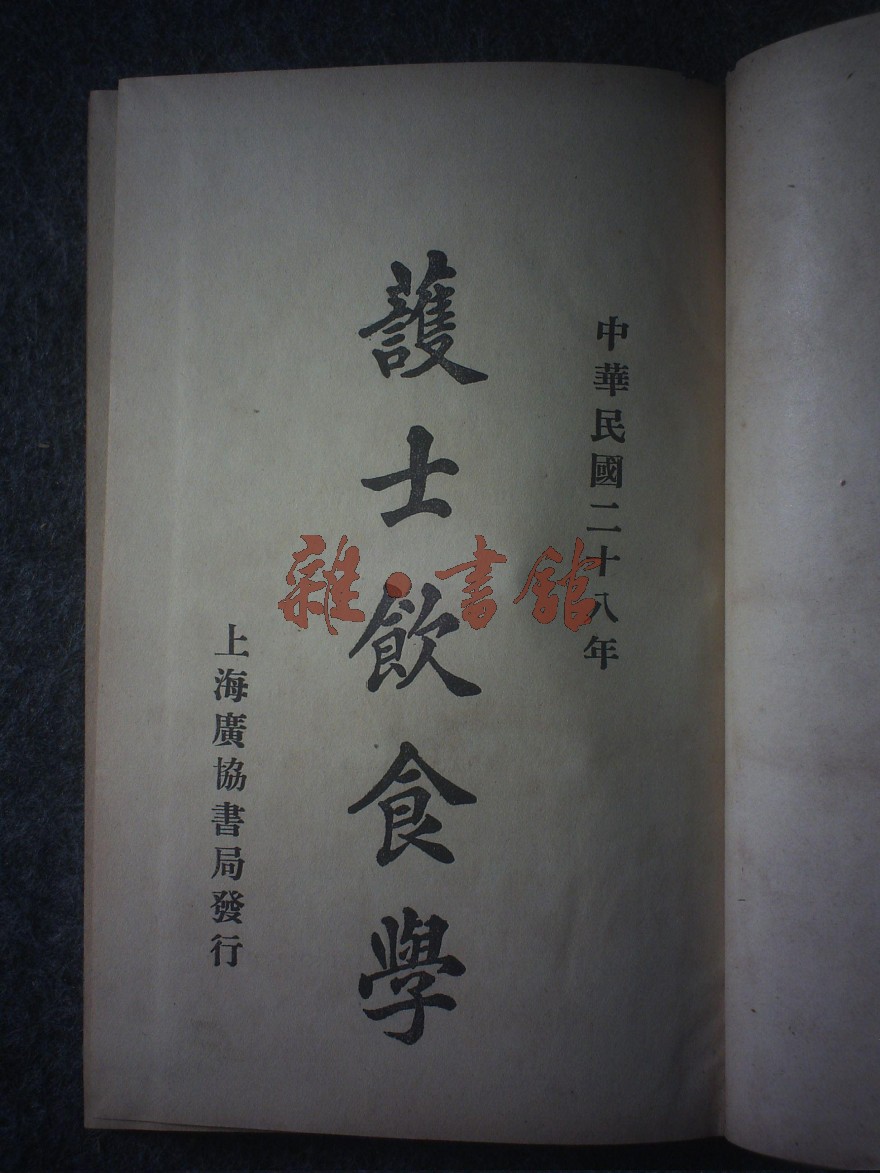 中華民國二十八年
護士飲食學
上海廣協書局發行
雜·書館